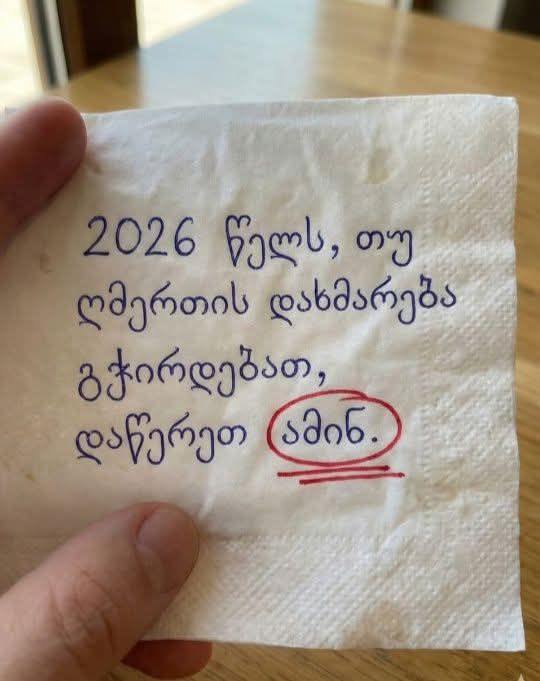 2026 წელს, თუ
ღმერთის დახმარება
გჭირდებათ,
დაწერეთ ამინ.